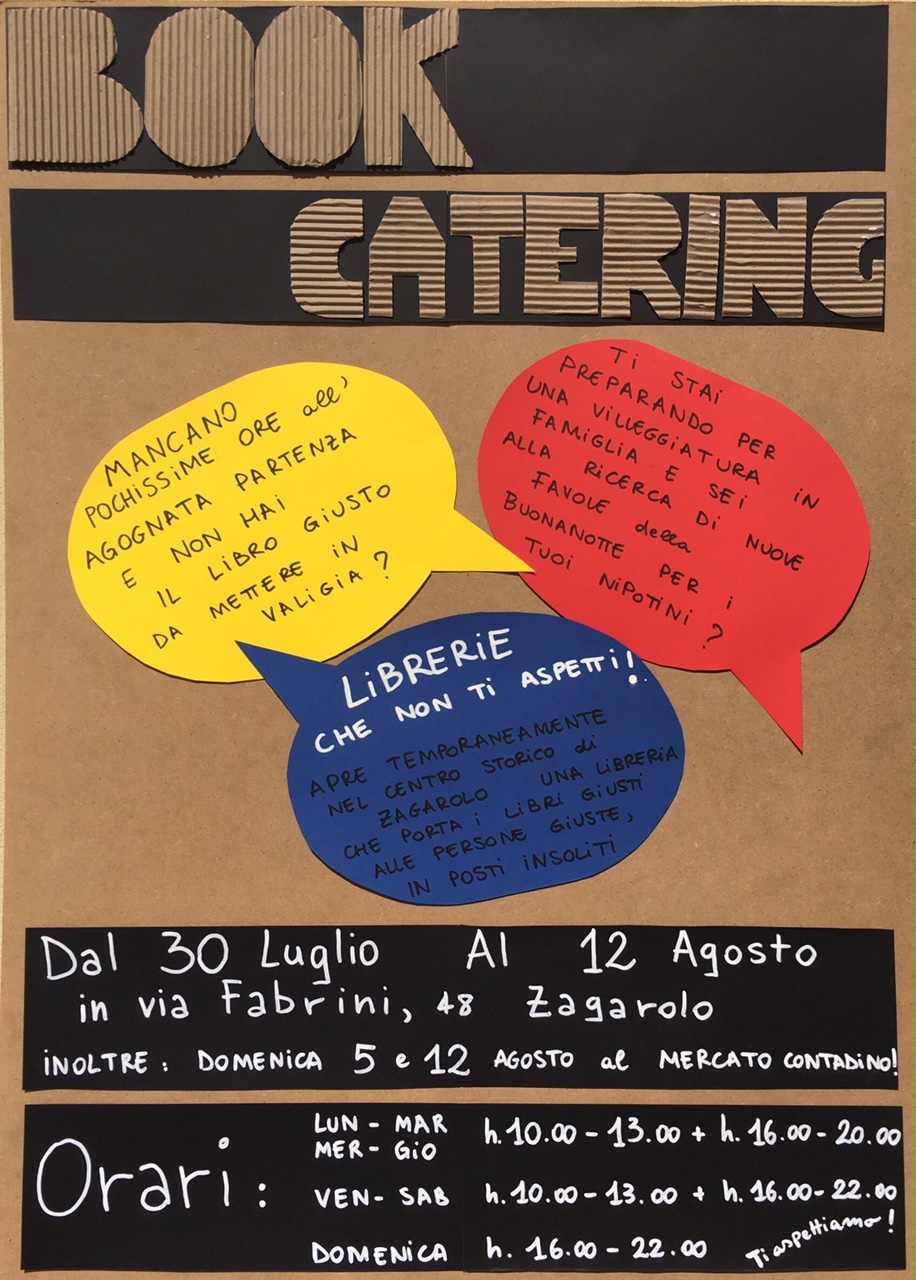 BOOK
CATERING
MANCANO
POCHISSIME ORE all'
AGOGNATA PARTENZA
E NON HAI
IL LIBRO GIUSTO
DA METTERE IN
VALIGIA?
Ti STAI
PREPARANDO PER
UNA VILLEGGIATURA IN
FAMIGLIA E SEI
ALLA RICERCA DI NUOVE
FAVOLE della
BUONANOTTE PER I
TUOI NIPOTINI?
LIBRERIE
CHE NON TI ASPETTI!
APRE TEMPORANEAMENTE
NEL CENTRO STORICO di
ZAGAROLO UNA LIBRERIA
CHE PORTA I LIBRI GIUSTI
ALLE PERSONE GIUSTE,
IN POSTI INSOLITI
Dal 30 Luglio Al 12 Agosto
in via Fabrini, 48 Zagarolo
INOLTRE: DOMENICA 5 e 12 AGOSTO al MERCATO CONTADINO!
Orari:
LUN - MAR
MER - GIO
h. 10.00 - 13.00 + h. 16.00 - 20.00
VEN - SAB h. 10.00 - 13.00 + h. 16.00 - 22.00
DOMENICA h. 16.00 - 22.00
Ti aspettiamo!